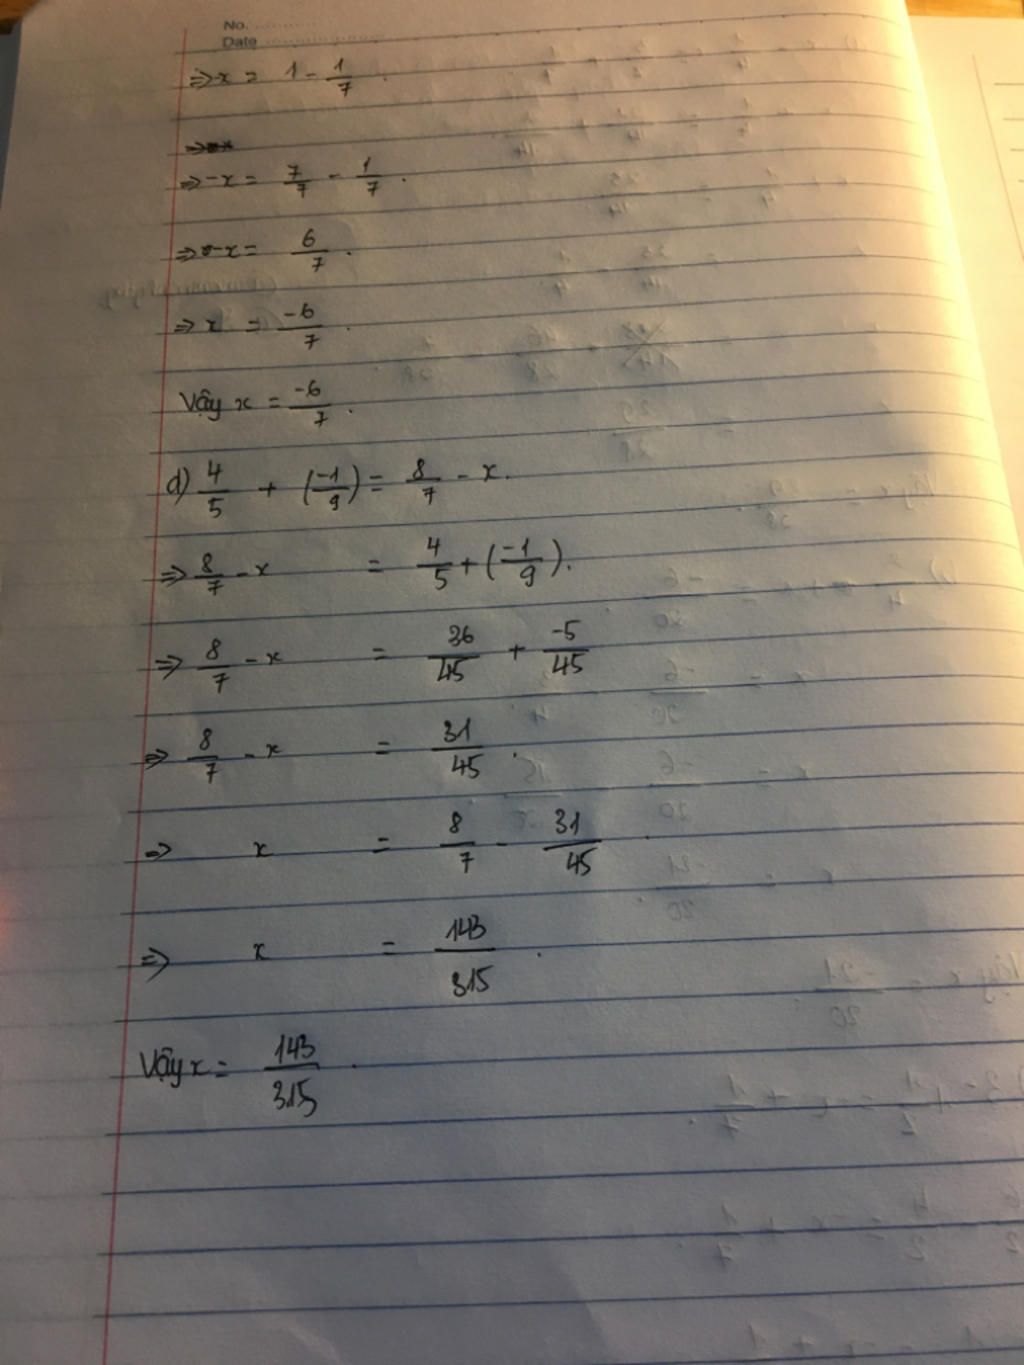 No.
Date
⇒-x = 1 - 1/7 .
⇒-x = 7/7 - 1/7 .
⇒-x = 6/7 .
⇒ x = -6/7 .
Vậy x = -6/7 .
d) 4/5 + (-1/9) = 8/7 - x.
⇒ 8/7 - x = 4/5 + (-1/9).
⇒ 8/7 - x = 36/45 + -5/45
⇒ 8/7 - x = 31/45 .
⇒ x = 8/7 - 31/45 .
⇒ x = 143/315 .
Vậy x = 143/315 .